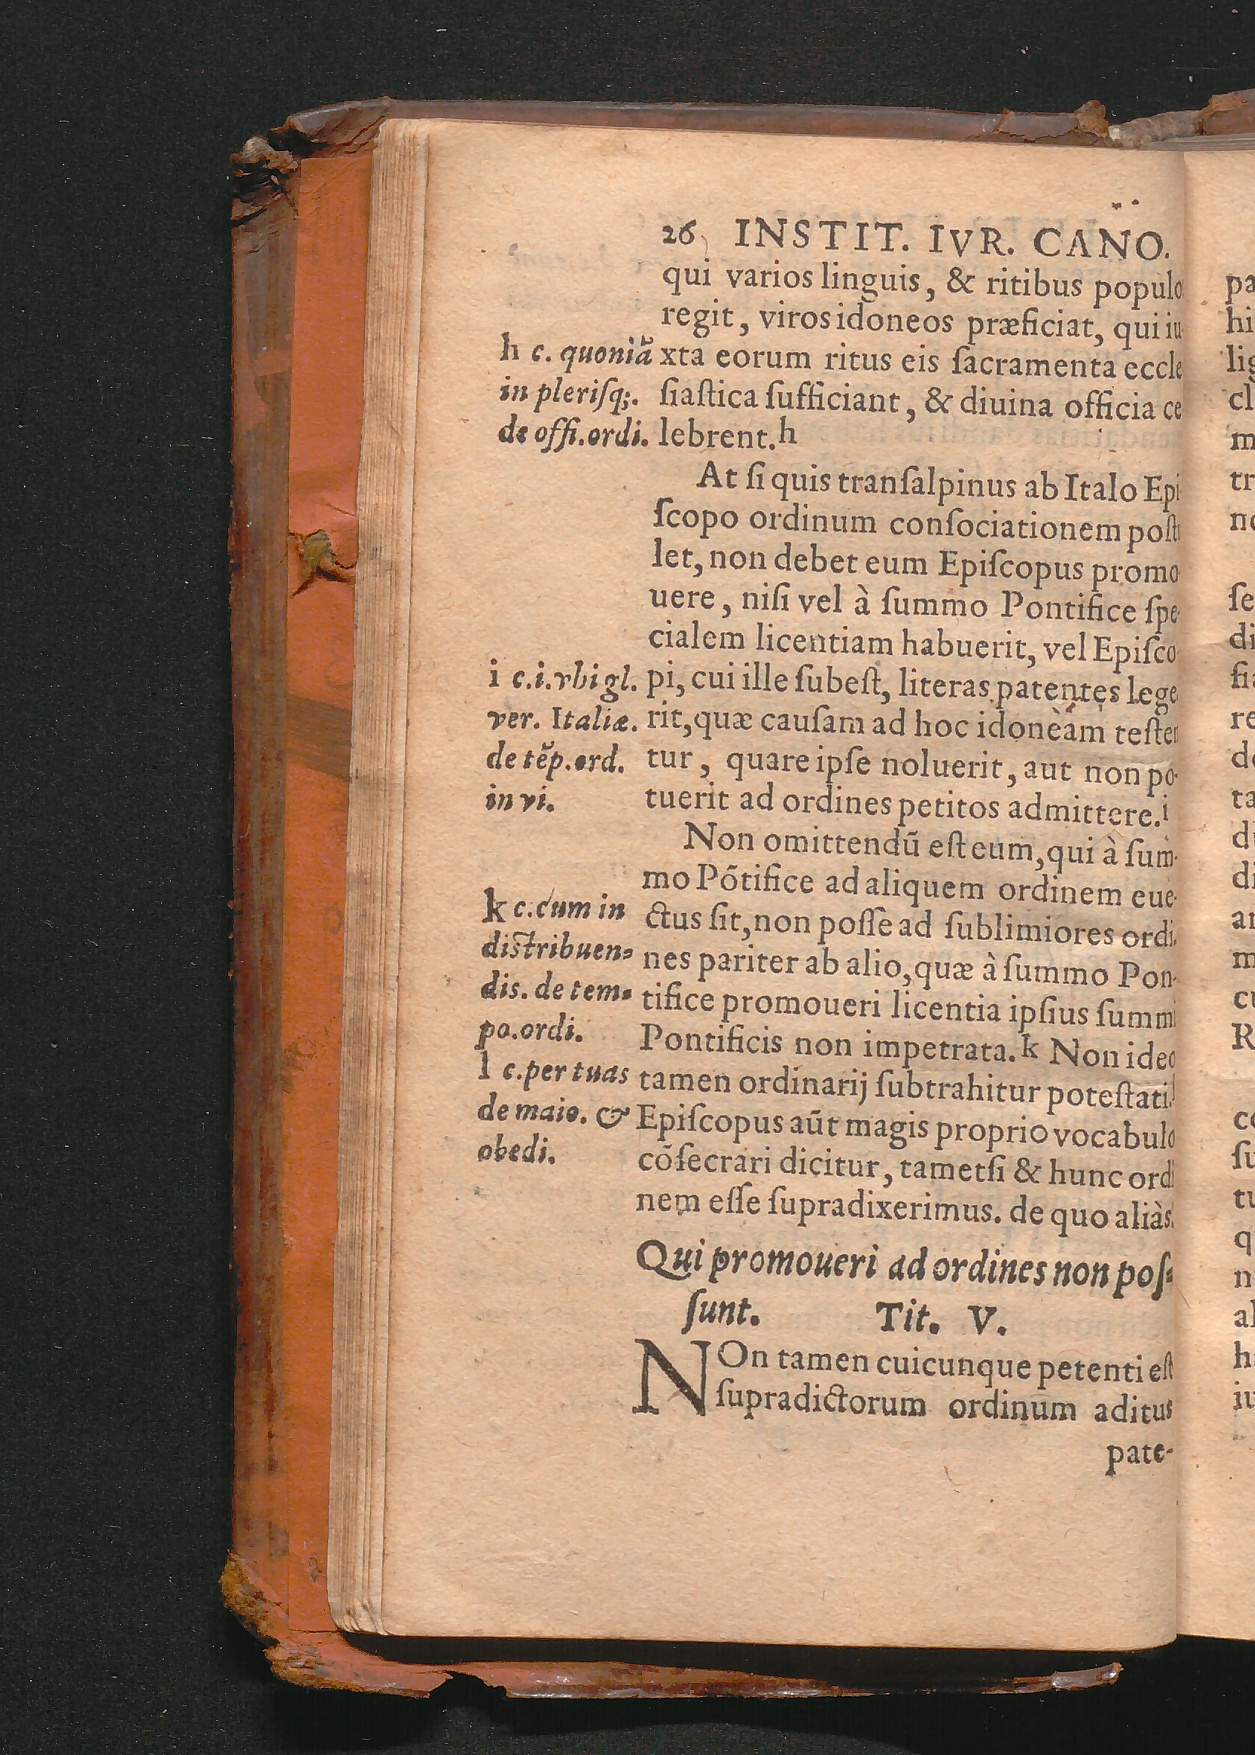 26 INSTIT. IVR. CANO.
qui varios linguis, & ritibus populo
regit, viros idoneos præficiat, qui iu
xta eorum ritus eis ſacramenta eccle
ſiaſtica ſufficiant, & diuina officia ce
lebrent.h
h c. quoniā
in pleriſq;.
de offi.ordi.
At ſi quis tranſalpinus ab Italo Epi
ſcopo ordinum conſociationem poſtu
let, non debet eum Epiſcopus promo
uere, niſi vel à ſummo Pontifice ſpe-
cialem licentiam habuerit, vel Epiſco-
pi, cui ille ſubeſt, literas patentes lege
rit, quæ cauſam ad hoc idoneam teſten
tur, quare ipſe noluerit, aut non po-
tuerit ad ordines petitos admittere.i
i c.i.vbi gl.
ver. Italiæ.
de tēp.ord.
in vi.
Non omittendū eſt eum, qui à ſum-
mo Pōtifice ad aliquem ordinem eue-
ctus ſit, non poſſe ad ſublimiores ordi-
nes pariter ab alio, quæ à ſummo Pon-
tifice promoueri licentia ipſius ſummi
Pontificis non impetrata.k Non ideo
tamen ordinarij ſubtrahitur poteſtati.l
Epiſcopus aūt magis proprio vocabulo
cōſecrari dicitur, tametſi & hunc ordi
nem eſſe ſupradixerimus. de quo aliàs.
k c.cum in
distribuen-
dis. de tem-
po.ordi.
l c.per tuas
de maio. &
obedi.
Qui promoueri ad ordines non poſ-
ſunt. Tit. V.
NOn tamen cuicunque petenti eſt
ſupradictorum ordinum aditus
pate-